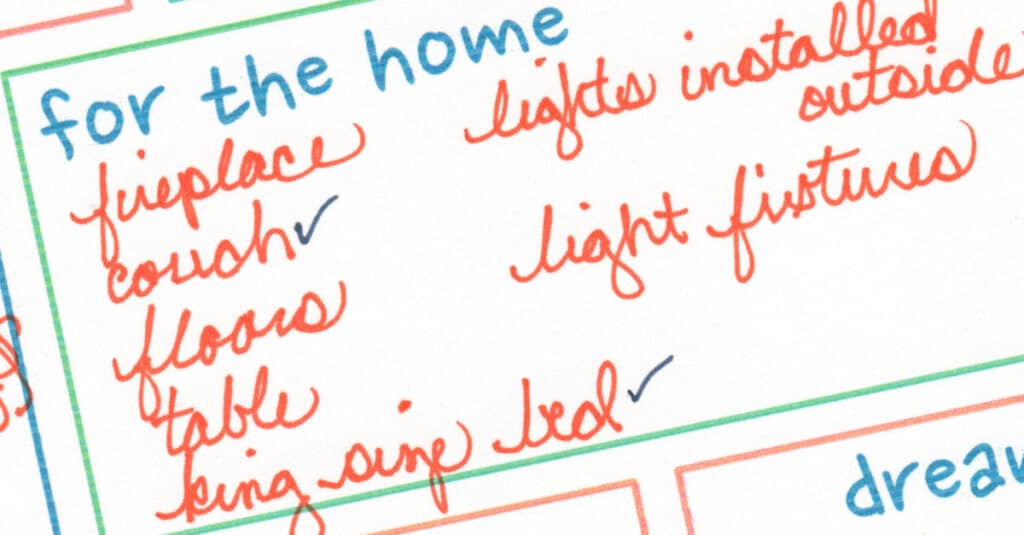 for the home
fireplace
couch ✓
floors
table
king size bed ✓
lights installed
outside
light fixtures